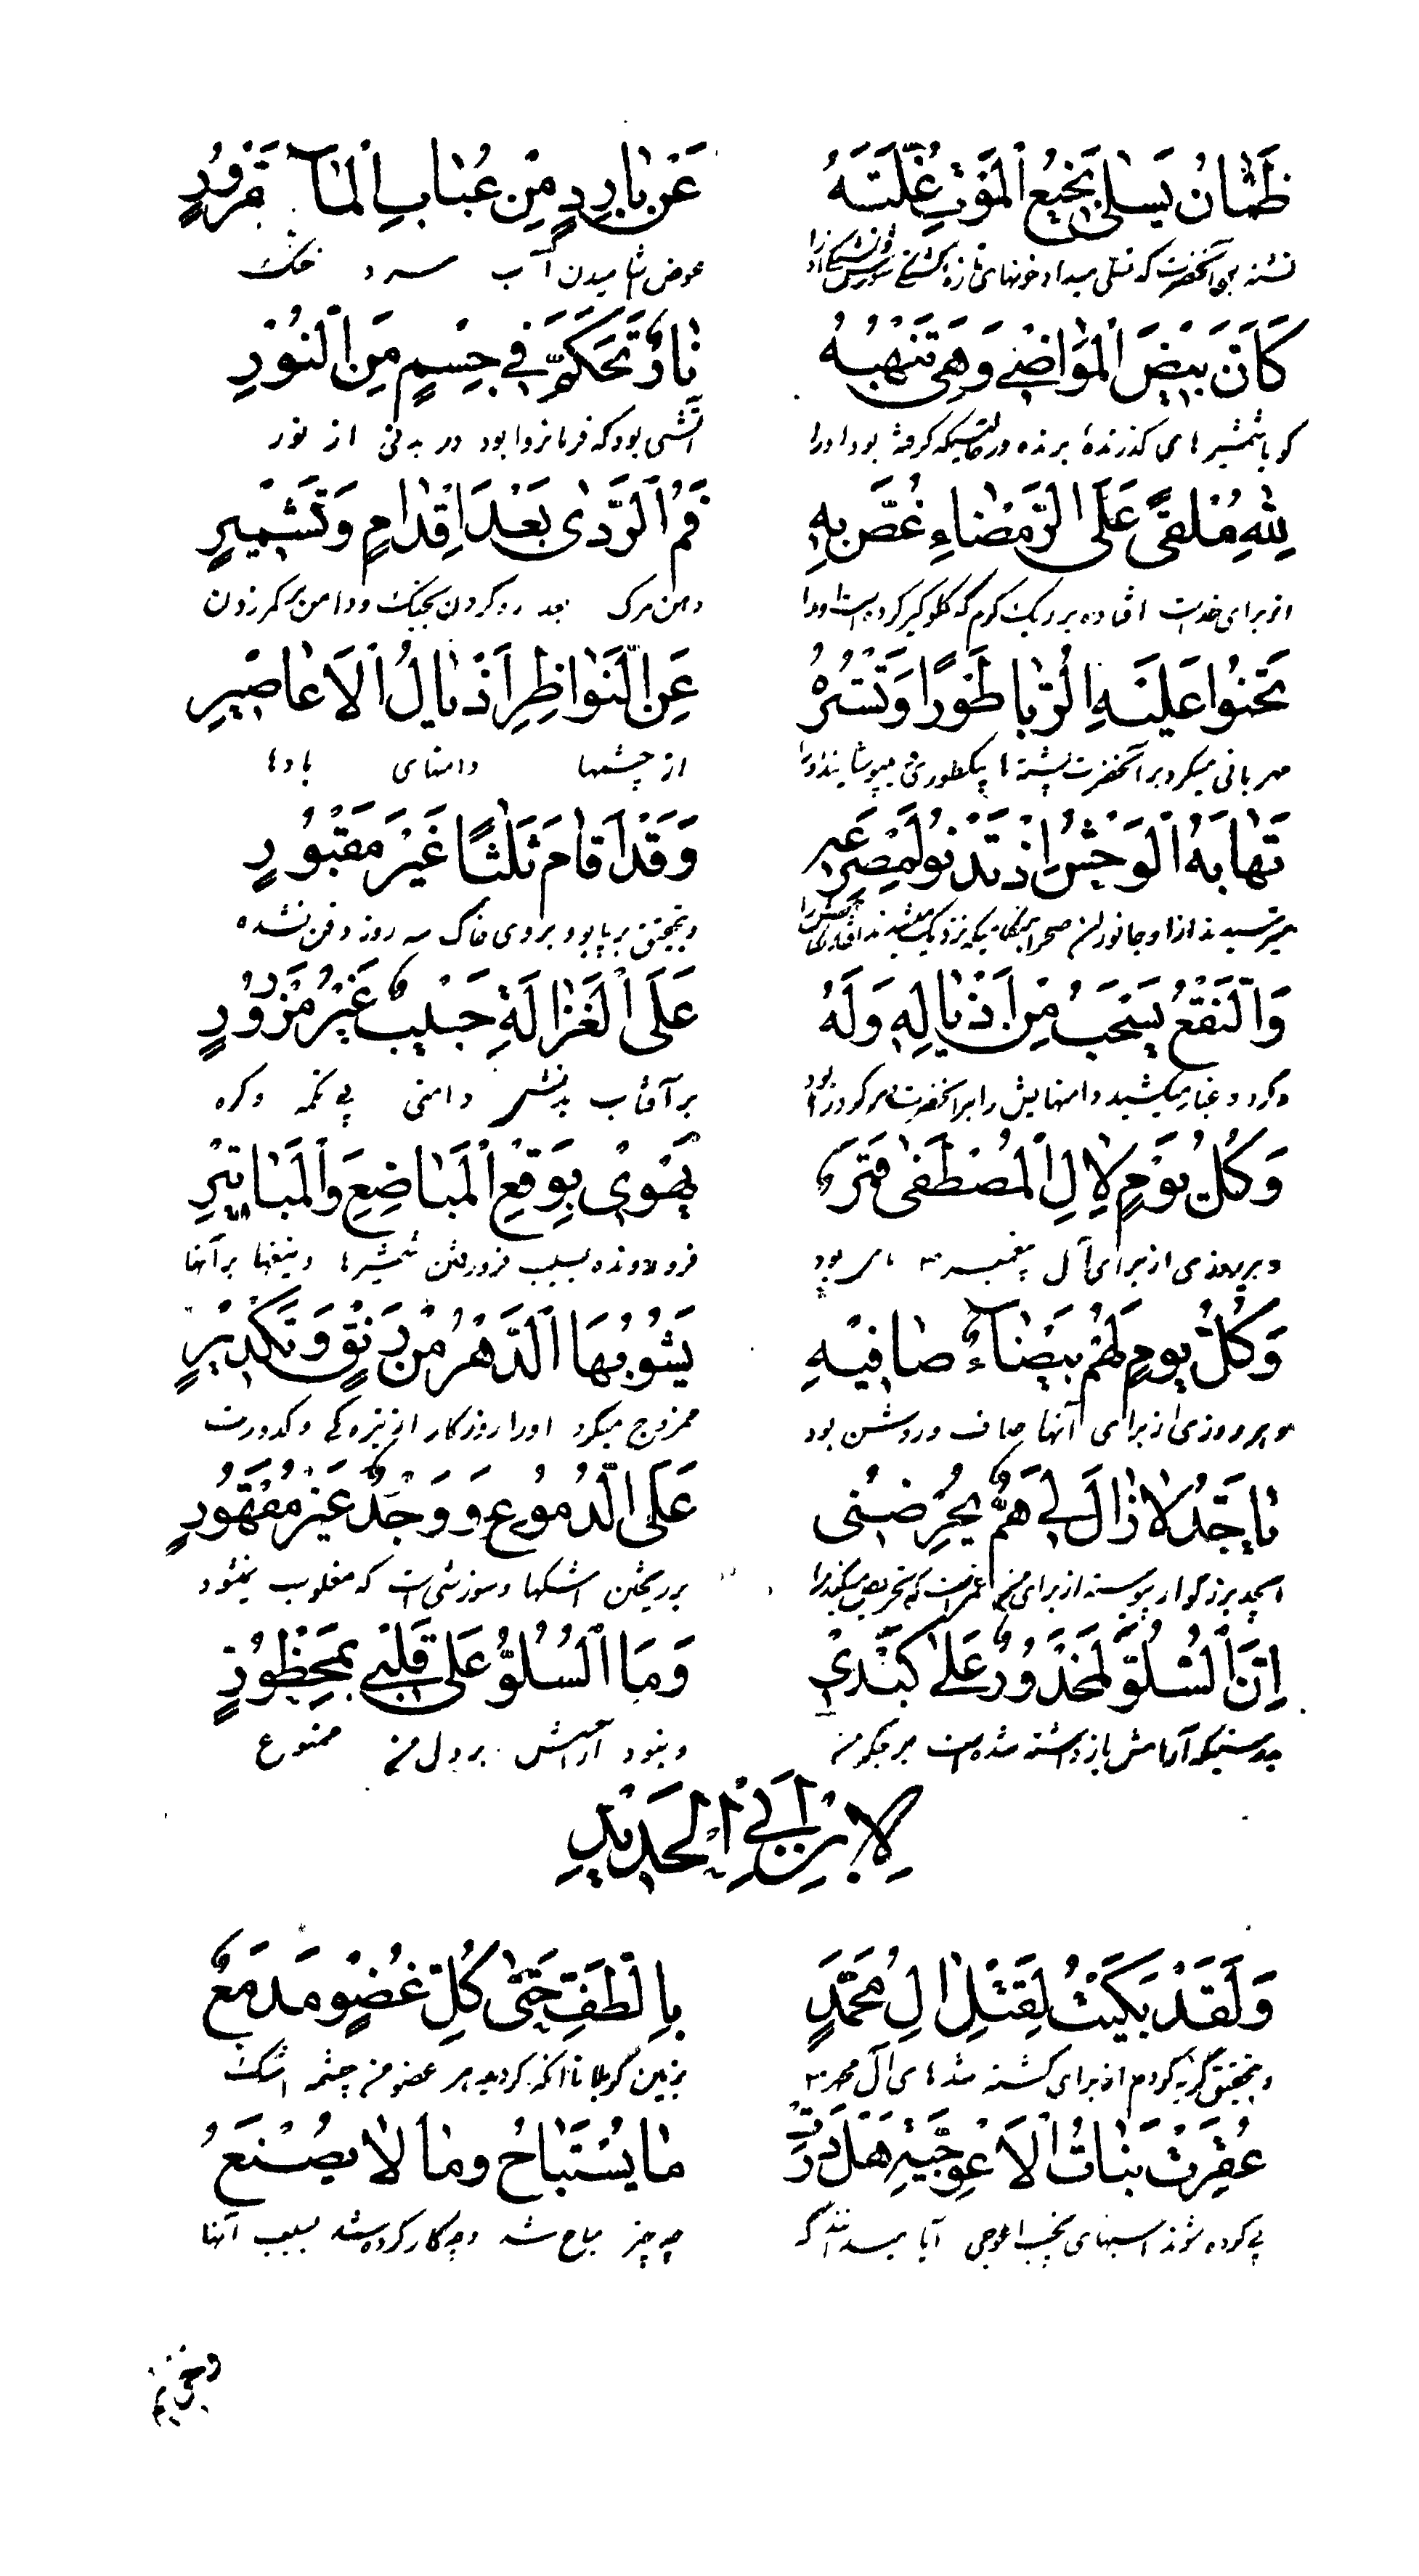 ظَمْاٰنُ يَسْلىٰ نَجِيعُ الْمَوْتِ غُلَّتَهُ عَنْ بٰارِدٍ مِنْ عُبٰابِ الْمٰاءِ مَقْرُورٍ
تشنه بود آنحضرت که تسلی میداد خونهای تازه عوض آشامیدن آب سرد خنک
كَاَنَّ بَيْضَ الْمَوٰاضِي وَهِيَ تَنْهَبُهُ نٰارٌ تَحَكَّمُ فِي جِسْمٍ مِنَ النُّوْرِ
گویا شمشیرهای گذرندهٔ برنده در حالتیکه گرفته بود او را آتشی بود که فرمانروا بود در بدنی از نور
لِلّٰهِ مُلْقىً عَلَى الرَّمْضٰاءِ غُصَّ بِهِ فَمُ الرَّدٰى بَعْدَ اِقْدٰامٍ وَتَشْمِيرٍ
از برای خداست افتاده بر ریگ گرم که گلوگیر کرده است او را دهن مرگ بعد رو کردن بجنگ و دامن بر کمر زدن
تَحْنُوا عَلَيْهِ الرُّبٰا طَوْرًا وَتَسْتُرُهُ عَنِ النَّوٰاظِرِ اَذْيٰالُ الْاَعٰاصِيرِ
مهربانی میکرد بر آنحضرت پشته ها یکطوری و میپوشانید او را از چشمها دامنهای بادها
تَهٰابُهُ الْوَحْشُ اِنْ تَدْنُو لِمَصْرَعِهِ وَقَدْ اَقٰامَ ثَلٰثًا غَيْرَ مَقْبُورٍ
میترسیدند از او جانوران صحرا هنگامیکه نزدیک میشدند و بتحقیق برپا بود بروی خاک سه روز دفن نشده
وَالنَّقْعُ يَسْحَبُ مِنْ اَذْيٰالِهِ وَلَهُ عَلَى الْغَزٰالَةِ جَيْبٌ غَيْرُ مَزْرُورٍ
و گرد و غبار میکشید دامنهایش را بر آنحضرت بر آفتاب دامنی بی تکمه و گره
وَكُلُّ يَوْمٍ لِاٰلِ الْمُصْطَفٰى قَمَرٌ يَهْوِيْ بِوَقْعِ الْمَبٰاضِعِ وَالْمَبٰاتِيْرِ
و بهر روزی از برای آل پیغمبر ص ماهی بود فرو رونده بسبب فرو رفتن شمشیرها و تیغها بر آنها
وَكُلُّ يَوْمٍ لَهُمْ بَيْضٰاءُ صٰافِيَةٌ يَشُوْبُهَا الدَّهْرُ مِنْ رَنْقٍ وَتَكْدِيْرٍ
و بهر روزی از برای آنها صاف و روشن بود ممزوج میکرد او را روزگار از تیره گی و کدورت
يٰا جَدُّ لاٰ زٰالَ لِي هَمٌّ يُحَرِّضُنِى عَلَى الدُّمُوعِ وَوَجْدٌ غَيْرُ مَقْهُورٍ
ایجد بزرگوار پیوسته از برای من غمی است که تحریص میکند مرا بر ریختن اشکها و سوزشی است که مغلوب نمیشود
اِنَّ السُّلُوَّ لَمَحْذُورٌ عَلىٰ كَبِدِيْ وَمَا السُّلُوُّ عَلىٰ قَلْبِي بِمَحْظُوْرٍ
بدرستیکه آرامش بازداشته شده است بر جگر من و نبود آرامش بر دل من ممنوع
لِابْنِ اَبِي الْحَدِيْدِ
وَلَقَدْ بَكَيْتُ لِقَتْلِ اٰلِ مُحَمَّدٍ بِالطَّفِّ حَتّٰى كُلُّ عُضْوٍ مَدْمَعُ
و بتحقیق گریه کردم از برای کشته شدهای آل محمد ص بزمین کربلا تا آنکه گردید هر عضو من چشمه اشک
عُقِرَتْ بَنٰاتُ الْاَعْوَجِيَّةِ هَلْ دَرَتْ مٰا يُسْتَبٰاحُ وَمٰا لاٰ يُصْنَعُ
پی کرده شوند اسبهای نجیب اعوجی آیا میدانند که چه چیز مباح شد و چه کار کرده شد بسبب آنها
وحریم